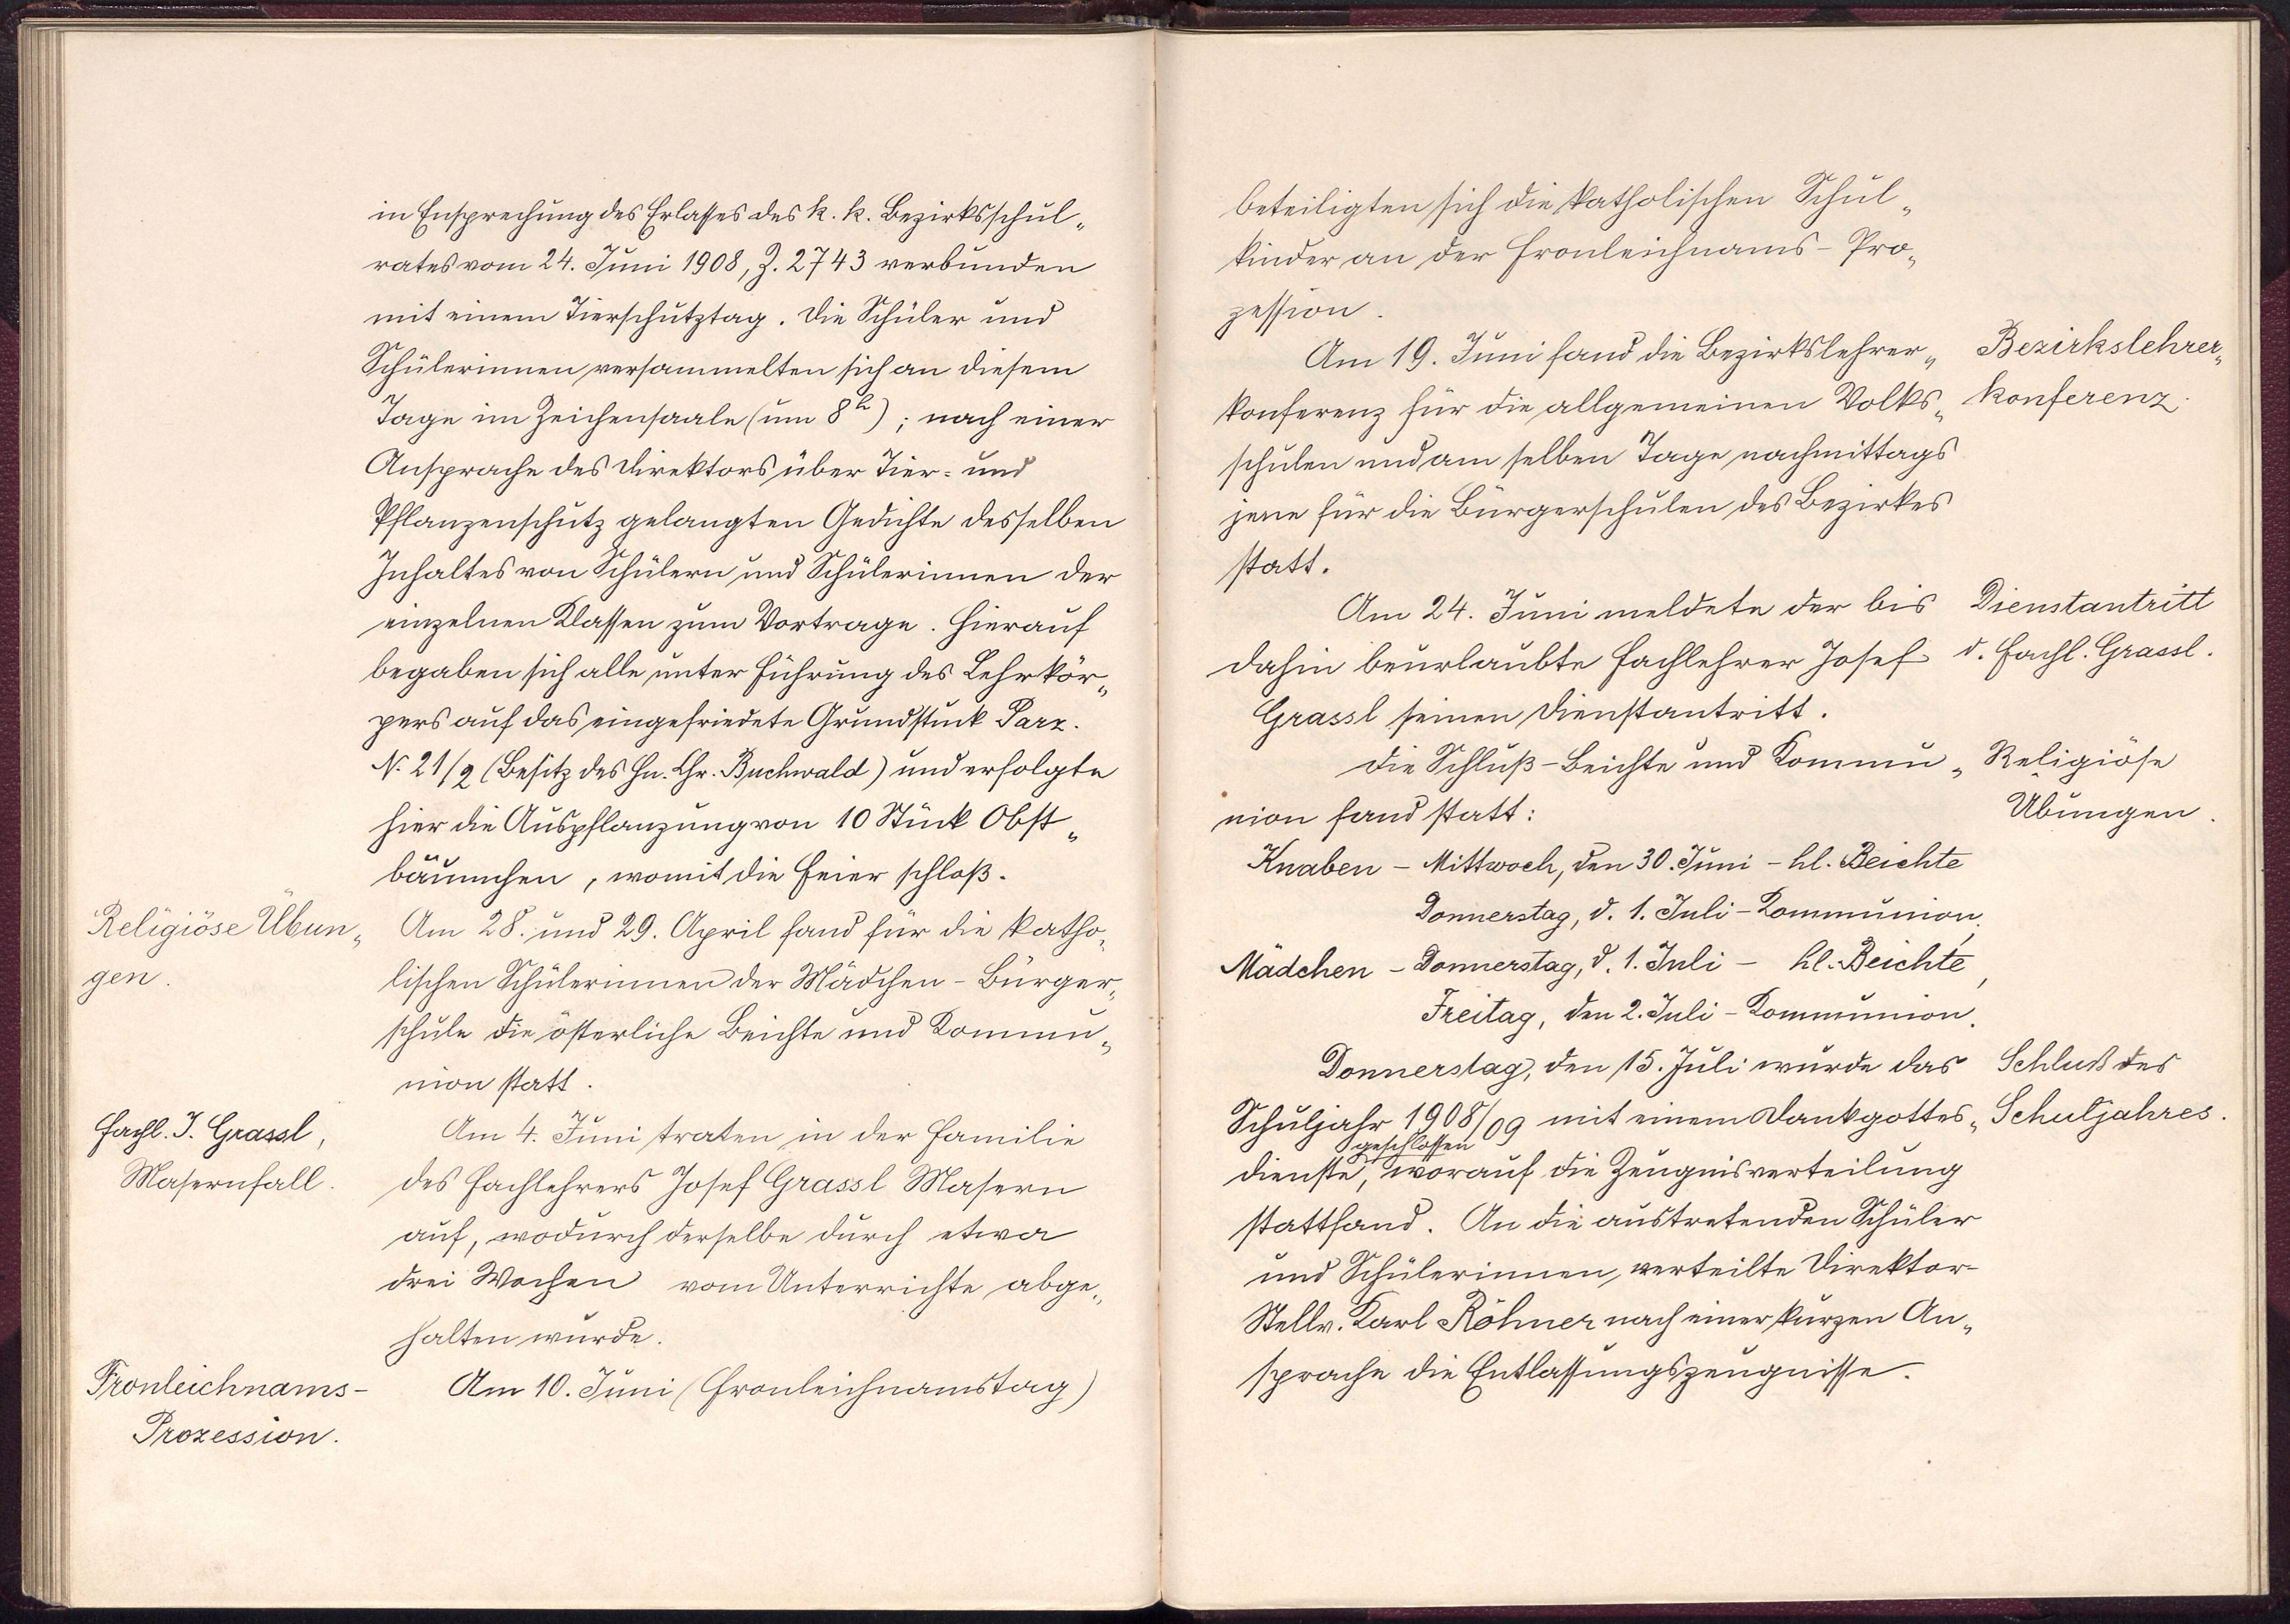 in Ensprechung des Erlasses des k. k. Bezirksschul„
rates vom 24. Juni 1908, Z. 2743 verbunden
mit einem Tierschutztag. Die Schüler und
Schülerinnen versammelten sich an diesem
Tage im Zeichensaale (um 8h); nach einer
Ansprache des Direktors über Tier- und
Pflanzenschutz gelangten Gedichte desselben
Inhaltes von Schülern und Schülerinnen der
einzelnen Klassen zum Vortrage. Hierauf
begaben sich alle unter Führung des Lehrkör„
pers auf das eingefriedete Grundstück Parz.
N. 21/2 (Besitz des Hn. Chr. Buchwald) und erfolgte
hier die Auspflanzung von 10 Stück Obst„
bäumchen, womit die Feier schloß.
Religiöse Übun„
gen.
Am 28. und 29. April fand für die katho„
lischen Schülerinnen der Mädchen-Bürger„
schule die österliche Beichte und Kommu„
nion statt.
Fachl. J. Grassl,
Masernfall.
Am 4. Juni traten in der Familie
des Fachlehrers Josef Grassl Masern
auf, wodurch derselbe durch etwa
drei Wochen vom Unterrichte abge„
halten wurde.
Fronleichnams-
Prozession.
Am 10. Juni (Fronleichnamstag)
beteiligten sich die katholischen Schul„
kinder an der Fronleichnams-Pro„
zession.
Am 19. Juni fand die Bezirkslehrer„
konferenz für die allgemeinen Volks„
schulen und am selben Tage nachmittags
jene für die Bürgerschulen des Bezirkes
statt.
Bezirkslehrer„
konferenz.
Am 24. Juni meldete der bis
dahin beurlaubte Fachlehrer Josef
Grassl seinen Dienstantritt.
Dienstantritt
d. Fachl. Grassl.
Die Schluß-Beichte und Kommu„
nion fand statt:
Religiöse
Übungen.
Knaben - Mittwoch, den 30. Juni - hl. Beichte
Donnerstag, d. 1. Juli - Kommunion,
Mädchen - Donnerstag, d. 1. Juli - hl. Beichte,
Freitag, den 2. Juli - Kommunion.
Donnerstag, den 15. Juli wurde das
Schuljahr 1908/09 mit einem Dankgottes„
geschlossen
dienste, worauf die Zeugnisverteilung
stattfand. An die austretenden Schüler
und Schülerinnen verteilte Direktor-
Stellv. Karl Röhner nach einer kurzen An„
sprache die Entlassungszeugnisse.
Schluß des
Schuljahres.